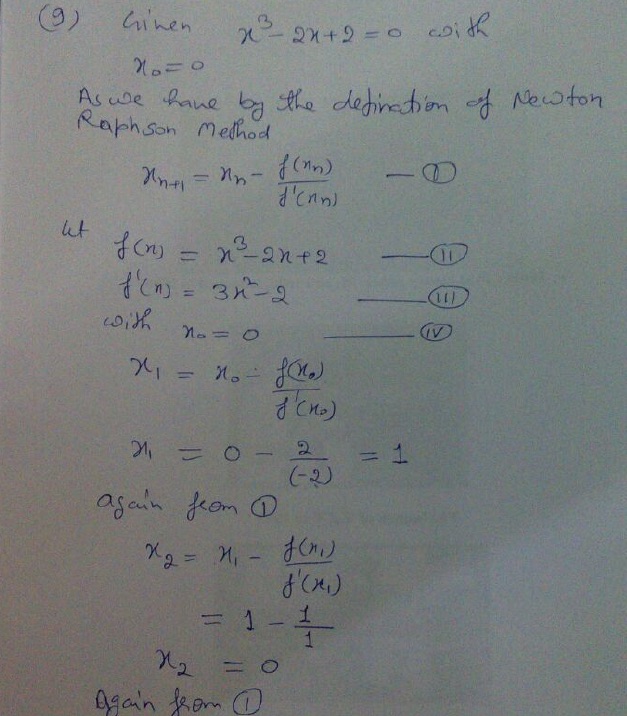 (9) Given x³ - 2x + 2 = 0 with
x₀ = 0
As we have by the defination of Newton
Raphson Method
xₙ₊₁ = xₙ - f(xₙ)/f'(xₙ) — (I)
let
f(x) = x³ - 2x + 2 — (II)
f'(x) = 3x² - 2 — (III)
with x₀ = 0 — (IV)
x₁ = x₀ - f(x₀)/f'(x₀)
x₁ = 0 - 2/(-2) = 1
Again from (I)
x₂ = x₁ - f(x₁)/f'(x₁)
= 1 - 1/1
x₂ = 0
Again from (I)